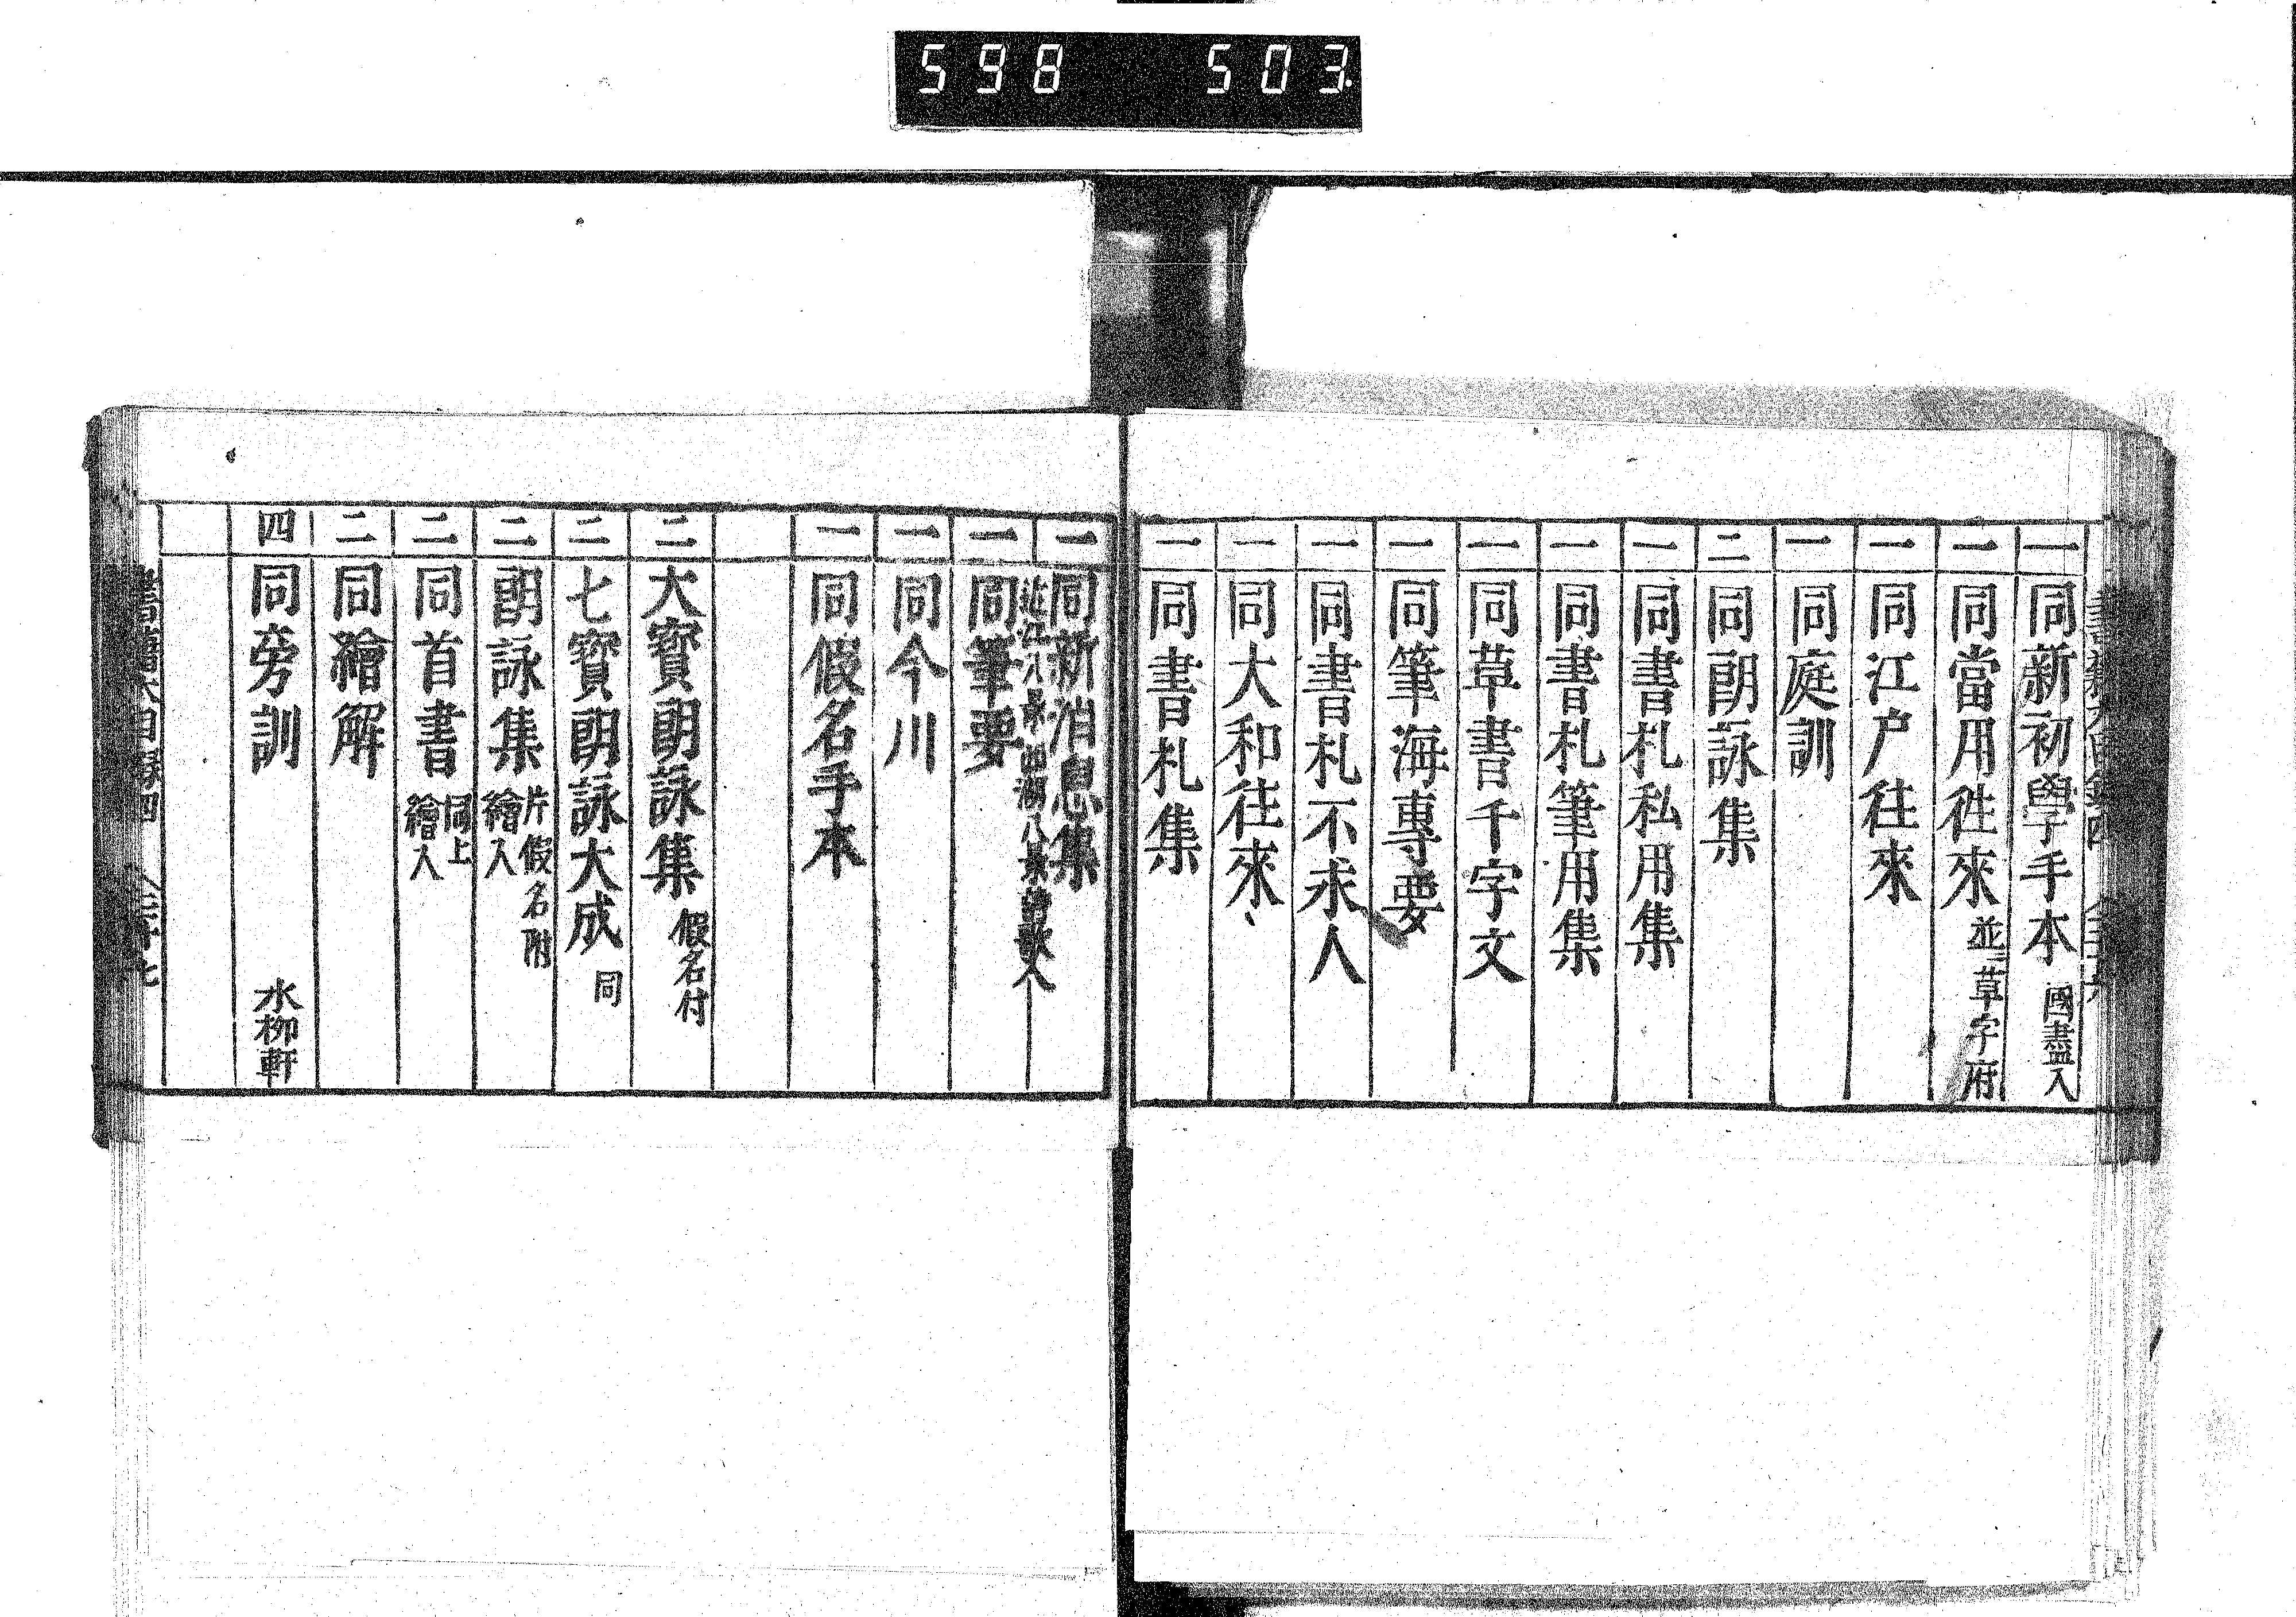 598 503
一 同新初學手本 國畫入
一 同當用徃來 並ニ草字府
一 同江户往來
一 同庭訓
二 同朗詠集
一 同書札私用集
一 同書札筆用集
一 同草書千字文
一 同筆海專要
一 同書札不求人
一 同大和往來
一 同書札集
一 同新消息集
近江八景西湖八景詩歌入
一 同筆要
一 同今川
一 同假名手本
二 大寳朗詠集 假名付
二 七寳朗詠大成 同
二 朗詠集 片假名附 繪入
二 同首書 同上 繪入
二 同繪解
四 同旁訓 水柳軒